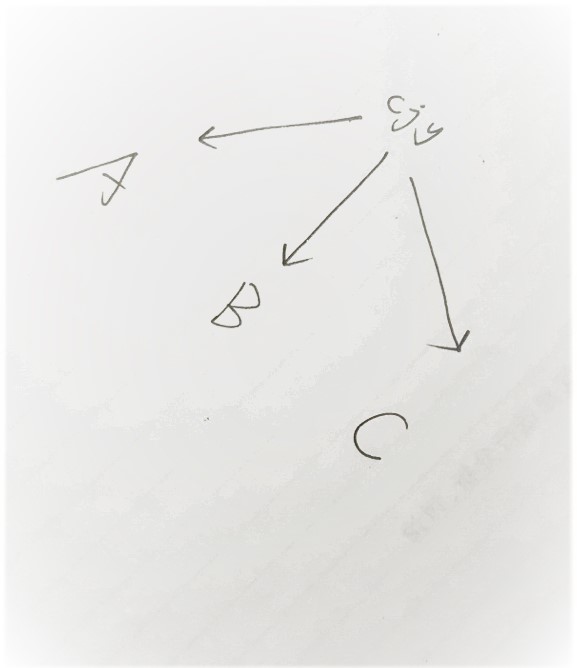 cjy
A
B
C